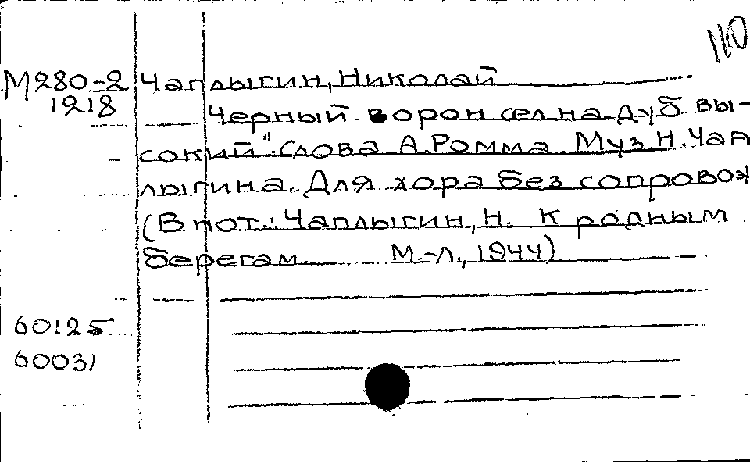 110
М280-2 Чаплыгин, Николай
1218 Черный ворон сел на дуб вы-
сокий" Слова А. Ромма Муз. Н. Чап
лыгина. Для хора без сопровож
(В нот.: Чаплыгин, Н. К родным
берегам М-Л, 1944)
60125
60031